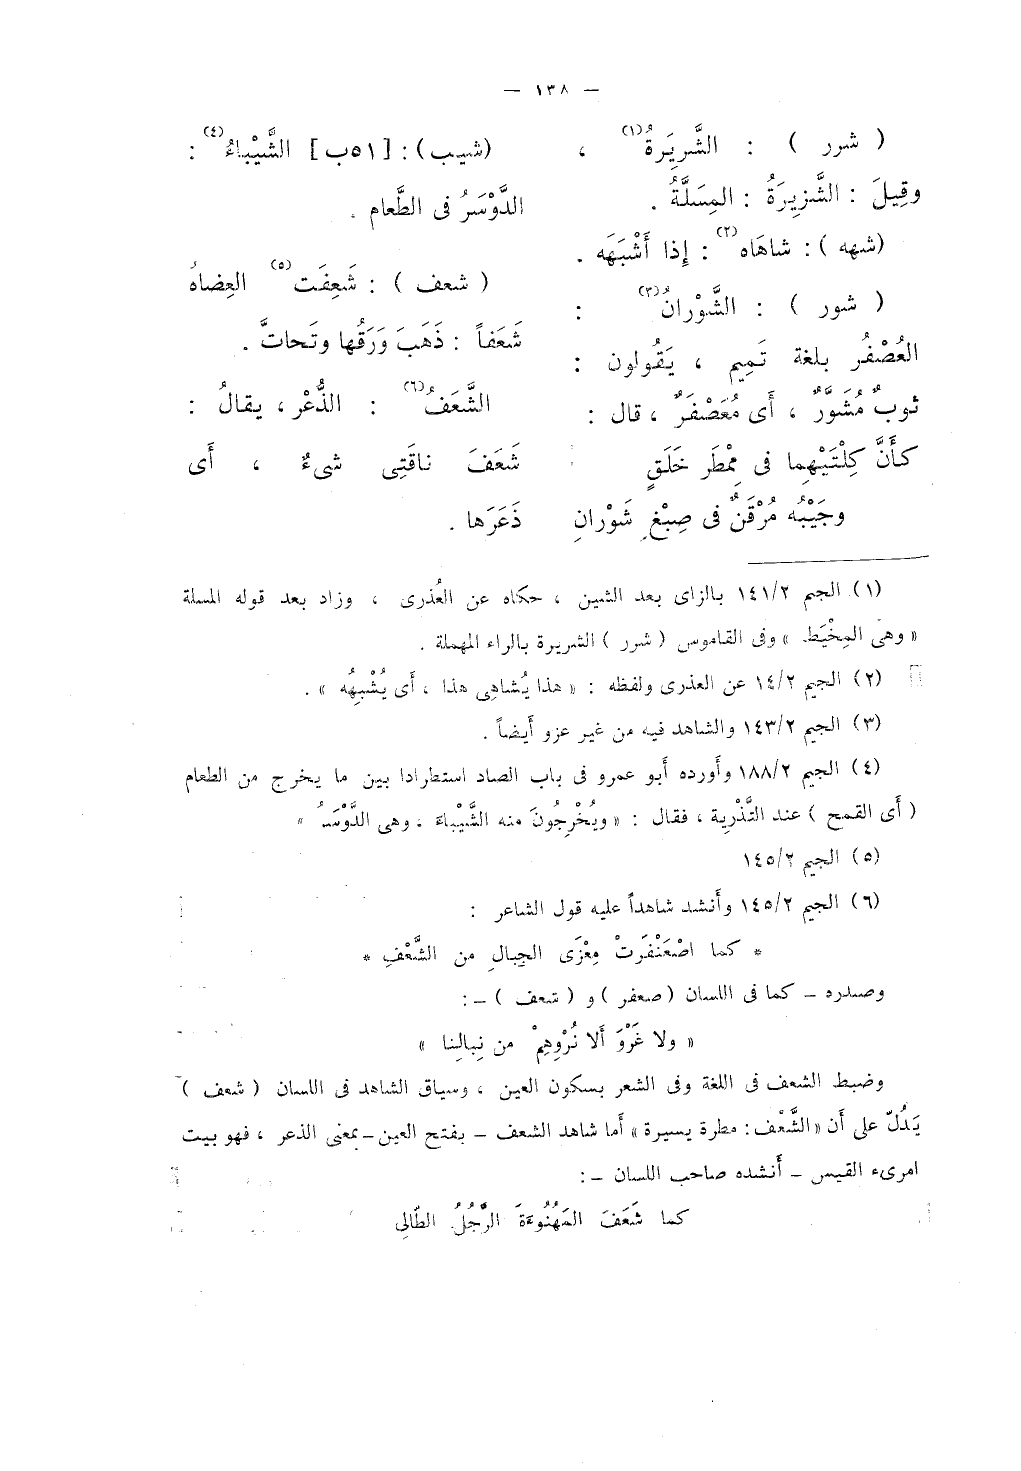 — ١٣٨ —
( شرر ) : الشَّرِيَرةُ(١) ،
وقِيلَ : الشَّزِيرَةُ : المِسَلَّةُ .
(شهه ) : شاهَاه(٢) : إذا أَشْبَهَه .
( شور ) : الشَّوْرانُ(٣) :
العُصْفُر بلغة تَمِيم ، يَقُولون :
ثوبٌ مُشَوَّرٌ ، أَى مُعَصْفَرٌ ، قال :
كأَنَّ كِلْتَيْهِما فى مِمْطَر خَلَقٍ
وجَيْبُه مُرْقَنٌ فى صِبْغِ شَوْرانِ
(شيب) : [٥١ب] الشَّيْباءُ(٤) :
الدَّوْسَرُ فى الطَّعام .
( شعف ) : شَعِفَت(٥) العِضاهُ
شَعَفاً : ذَهَبَ وَرَقُها وتَحاتَّ .
الشَّعَفُ(٦) : الذُّعْر ، يقالُ :
شَعَفَ ناقَتِى شىءٌ ، أَى
ذَعَرَها .
(١) الجيم ١٤١/٢ بالزاى بعد الشين ، حكاه عن العُذرى ، وزاد بعد قوله المسلة
« وهى المِخْيَط » وفى القاموس ( شرر ) الشريرة بالراء المهملة .
(٢) الجيم ١٤/٢ عن العذرى ولفظه : « هذا يُشاهِى هذا ، أَى يُشْبِهُه » .
(٣) الجيم ١٤٣/٢ والشاهد فيه من غير عزو أَيضاً .
(٤) الجيم ١٨٨/٢ وأَورده أَبو عمرو فى باب الصاد استطرادا بين ما يخرج من الطعام
( أَى القمح ) عند التَّذْرِية ، فقال : « ويُخْرِجُونَ منه الشَّيْباءَ ، وهى الدَّوْسَرُ »
(٥) الجيم ١٤٥/٢
(٦) الجيم ١٤٥/٢ وأَنشد شاهداً عليه قول الشاعر :
* كما اصْعَنْفَرَتْ مِعْزَى الجِبالِ من الشَّعْفِ *
وصدره – كما فى اللسان (صعفر ) و ( شعف ) – :
« ولا غَرْوَ أَلا نُرْوِهِمْ من نِبالِنا »
وضبط الشعف فى اللغة وفى الشعر بسكون العين ، وسياق الشاهد فى اللسان ( شعف )
يَدُلّ على أَن «الشَّعْف : مطرة يسيرة » أَما شاهد الشعف – بفتح العين – بمعنى الذعر ، فهو بيت
امرىء القيس – أَنشده صاحب اللسان – :
كما شَعَفَ المَهْنُوءَةَ الرَّجُلُ الطَّالِى